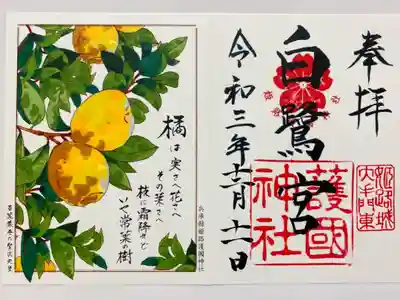 奉拝
白鷺宮
令和三年十一月十一日
護國
神社
姫路城
大手門東
橘は実さへ花さへ
その葉さへ
枝に霜降れど
いや常葉の樹
兵庫縣姫路護國神社